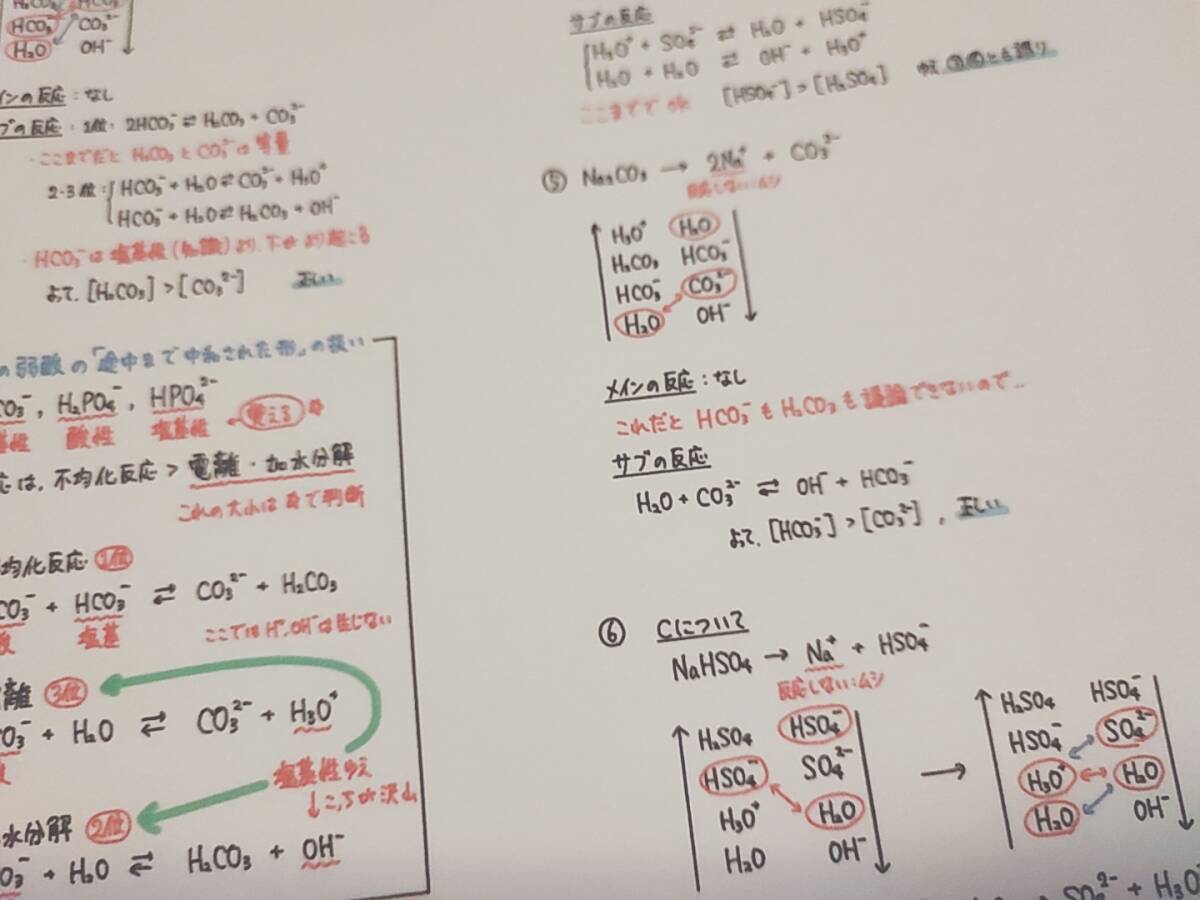 HCO₃⁻ CO₃²⁻
H₂O OH⁻
インの反応：なし
ブの反応・1位・2HCO₃⁻ ⇄ H₂CO₃ + CO₃²⁻
・ここまでだと H₂CO₃ と CO₃²⁻ は等量
2・3位：HCO₃⁻ + H₂O ⇄ CO₃²⁻ + H₃O⁺
HCO₃⁻ + H₂O ⇄ H₂CO₃ + OH⁻
・HCO₃⁻は塩基性(知識)より、下がより起こる
よって、[H₂CO₃] > [CO₃²⁻] 正しい
の弱酸の「途中まで中和された形」の扱い
CO₃⁻, H₂PO₄⁻, HPO₄²⁻
基性 酸性 塩基性 覚える
応は、不均化反応 > 電離・加水分解
これの大小は で判断
均化反応 1位
CO₃⁻ + HCO₃⁻ ⇄ CO₃²⁻ + H₂CO₃
酸 塩基 ここではH⁺, OH⁻は生じない
離 3位
CO₃⁻ + H₂O ⇄ CO₃²⁻ + H₃O⁺
塩基性ゆえ
↓こっちが沢山
水分解 2位
O₃⁻ + H₂O ⇄ H₂CO₃ + OH⁻
サブの反応
H₃O⁺ + SO₄²⁻ ⇄ H₂O + HSO₄⁻
H₂O + H₂O ⇄ OH⁻ + H₃O⁺
ここまでで [HSO₄⁻] > [H₂SO₄] とも誤り
⑤ Na₂CO₃ → 2Na⁺ + CO₃²⁻
反応しない：ムシ
H₃O⁺ H₂O
H₂CO₃ HCO₃⁻
HCO₃⁻ CO₃²⁻
H₂O OH⁻
メインの反応：なし
これだと HCO₃⁻ も H₂CO₃ も議論できないので…
サブの反応
H₂O + CO₃²⁻ ⇄ OH⁻ + HCO₃⁻
よって、[HCO₃⁻] > [CO₃²⁻]、正しい
⑥ Cについて
NaHSO₄ → Na⁺ + HSO₄⁻
反応しない：ムシ
H₂SO₄ HSO₄⁻
HSO₄⁻ SO₄²⁻
H₃O⁺ H₂O
H₂O OH⁻
→
H₂SO₄ HSO₄⁻
HSO₄⁻ SO₄²⁻
H₃O⁺ H₂O
H₂O OH⁻
SO₄²⁻ + H₃O